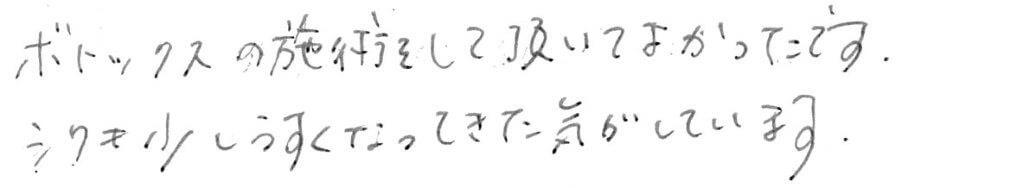 ボトックスの施術をして頂いてよかったです.
シワも少しうすくなってきた気がしています.